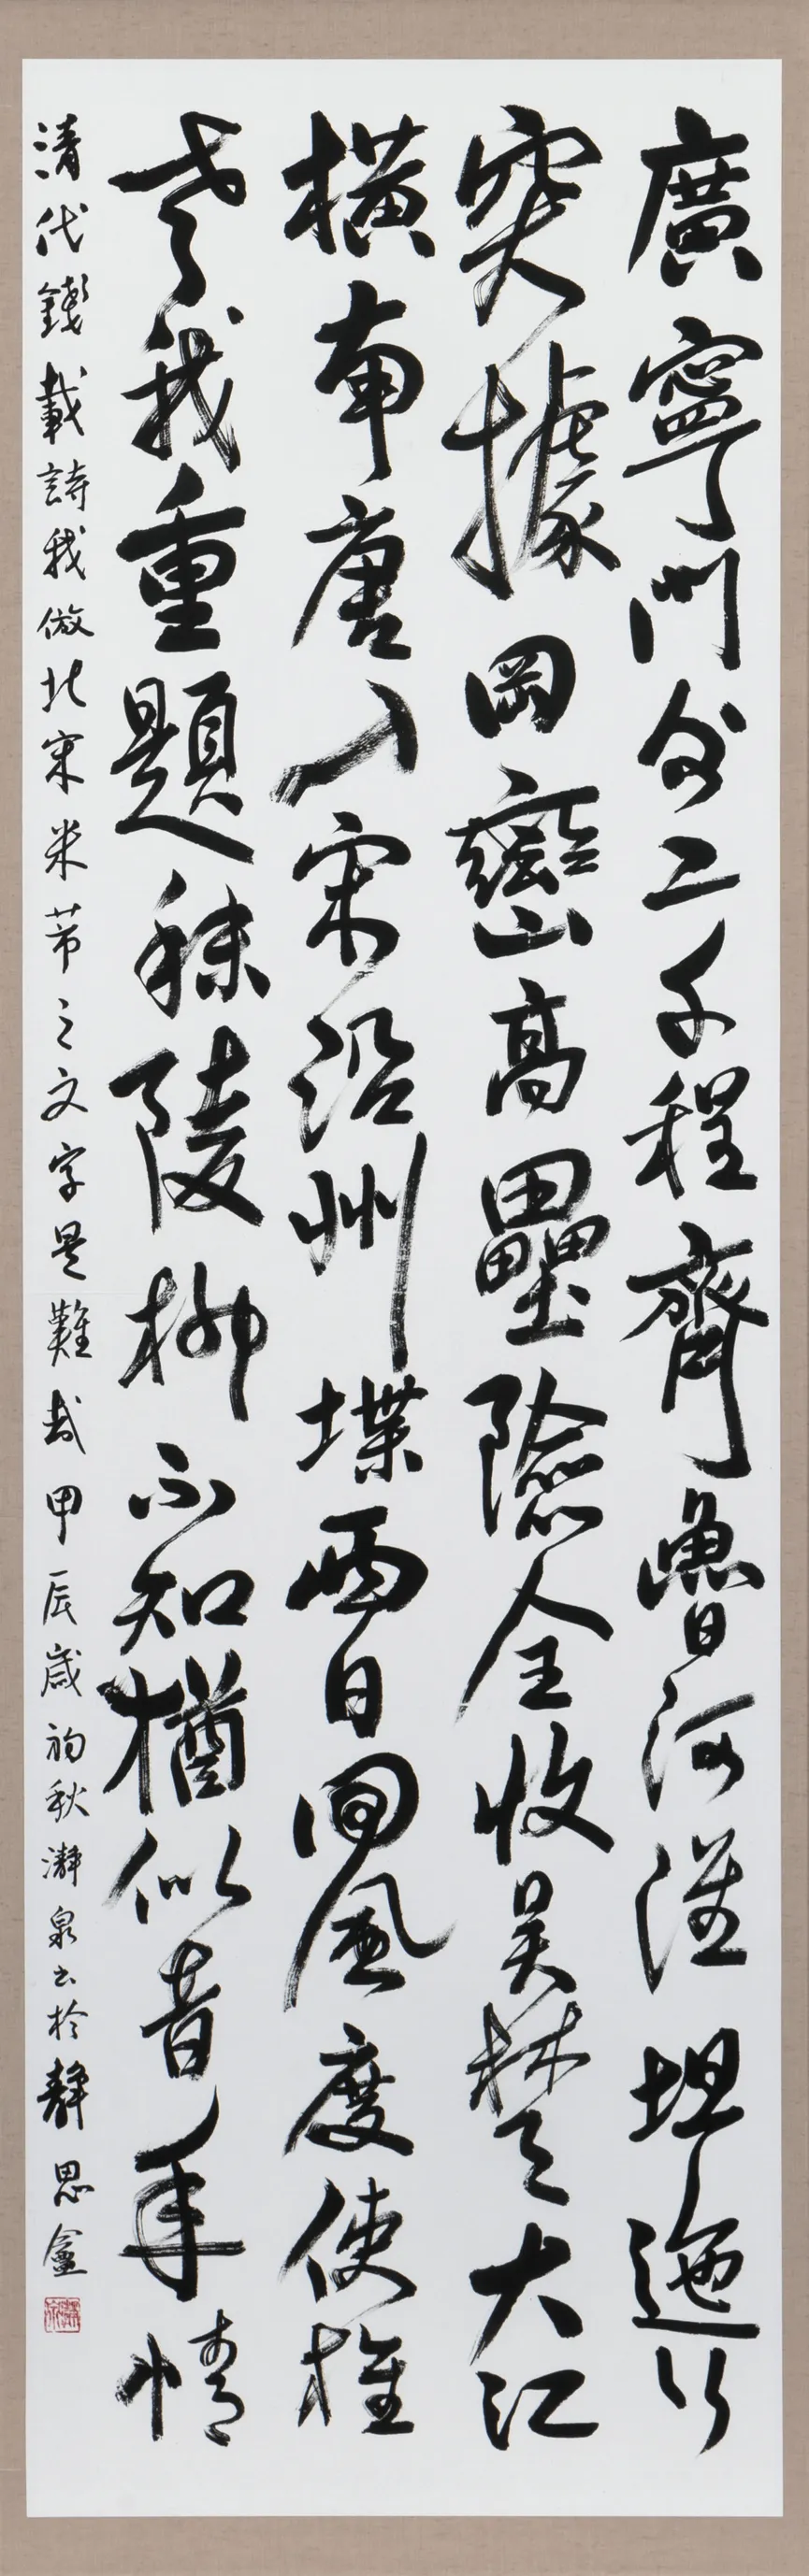 廣寧門外二千程齊魯河淮坦迤行
突據岡巒高壘險全收吳楚大江
橫南唐入宋沿州堞西日回風度使旌
老我重題秣陵柳不知猶似昔年情
清代錢載詩我倣北宋米芾之文字是難哉甲辰歲初秋瀞泉書於靜思盦